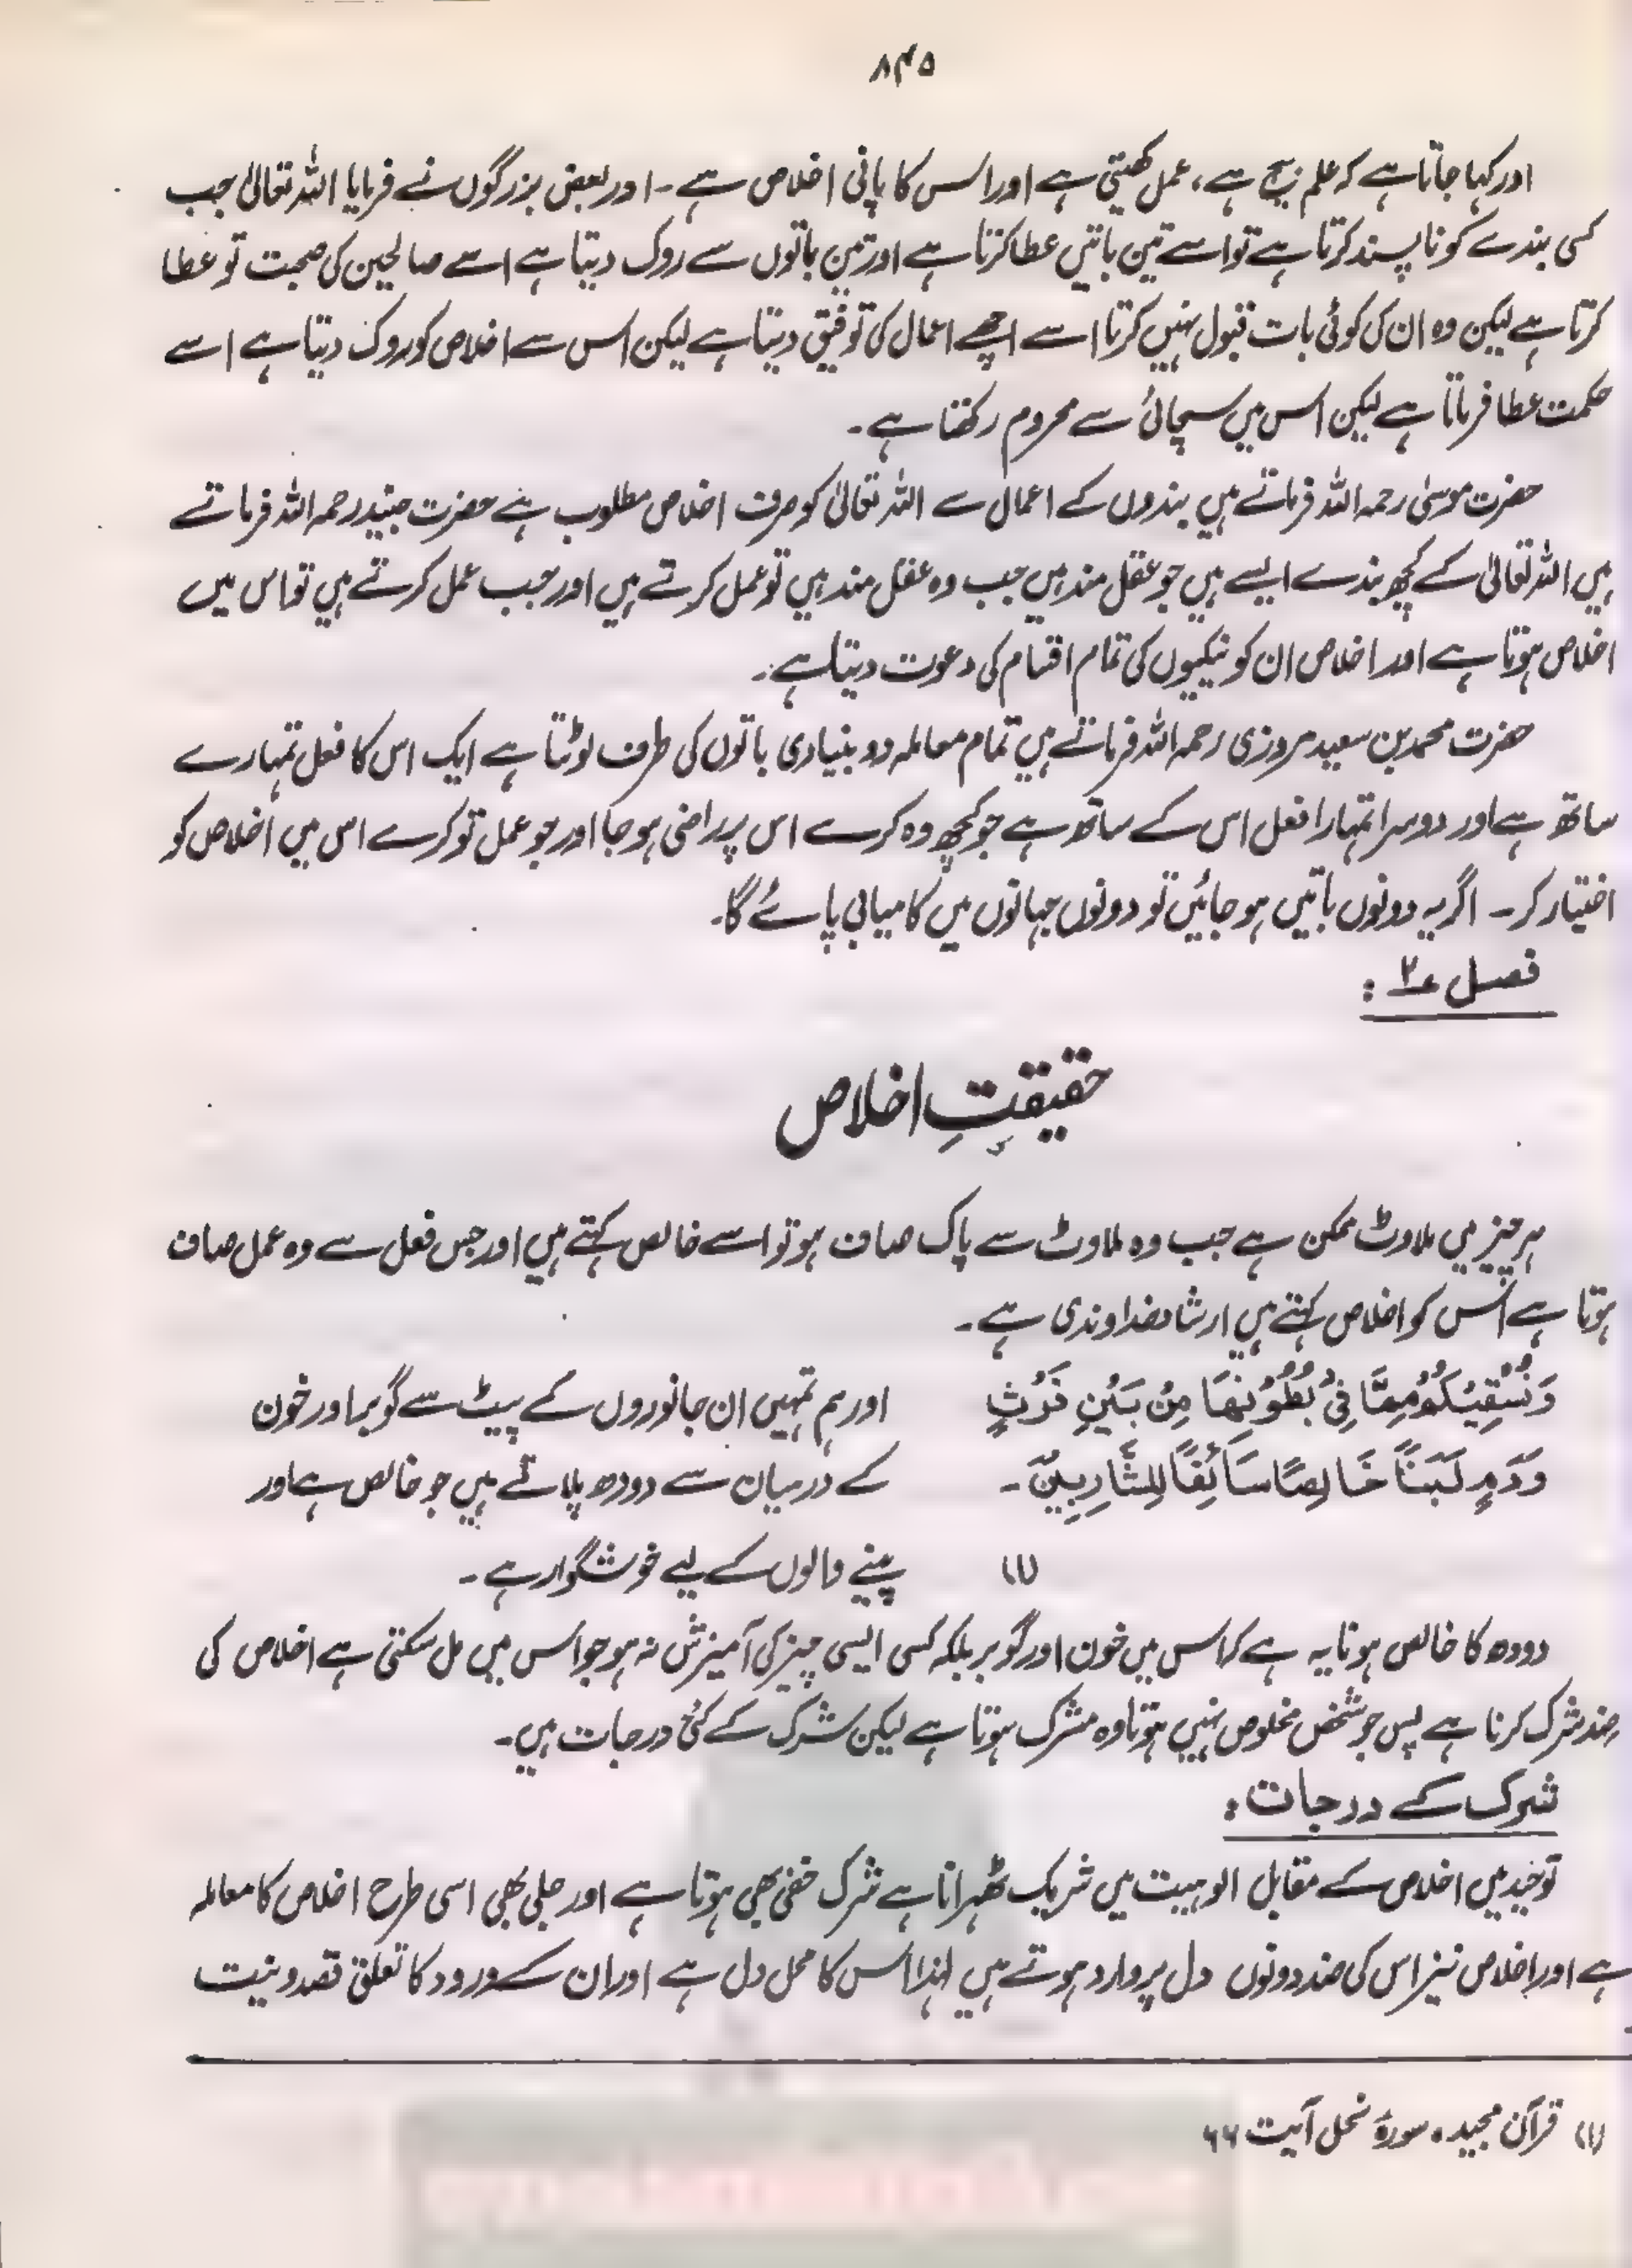 ۸۴۵
اور کہا جاتا ہے کہ علم بیج ہے، عمل کھیتی ہے اور اس کا پانی اخلاص ہے۔ اور بعض بزرگوں نے فرمایا اللہ تعالیٰ جب
کسی بندے کو نا پسند کرتا ہے تو اسے تین باتیں عطا کرتا ہے اور تین باتوں سے روک دیتا ہے اسے صالحین کی صحبت تو عطا
کرتا ہے لیکن وہ ان کی کوئی بات قبول نہیں کرتا اسے اچھے اعمال کی توفیق دیتا ہے لیکن اس سے اخلاص کو روک دیتا ہے اسے
حکمت عطا فرماتا ہے لیکن اس میں سچائی سے محروم رکھتا ہے۔
حضرت موسیٰ رحمہ اللہ فرماتے ہیں بندوں کے اعمال سے اللہ تعالیٰ کو صرف اخلاص مطلوب ہے حضرت جنید رحمہ اللہ فرماتے
ہیں اللہ تعالیٰ کے کچھ بندے ایسے ہیں جو عقل مند ہیں جب وہ عقل مند ہیں تو عمل کرتے ہیں اور جب عمل کرتے ہیں تو اس میں
اخلاص ہوتا ہے اور اخلاص ان کو نیکیوں کی تمام اقسام کی دعوت دیتا ہے۔
حضرت محمد بن سعید مروزی رحمہ اللہ فرماتے ہیں تمام معاملہ دو بنیادی باتوں کی طرف لوٹتا ہے ایک اس کا فعل تمہارے
ساتھ ہے اور دوسرا تمہارا فعل اس کے ساتھ ہے جو کچھ وہ کرے اس پر راضی ہو جا اور جو عمل تو کرے اس میں اخلاص کو
اختیار کر۔ اگر یہ دونوں باتیں ہو جائیں تو دونوں جہانوں میں کامیابی پائے گا۔
فصل ۲؎ :
حقیقتِ اخلاص
ہر چیز میں ملاوٹ ممکن ہے جب وہ ملاوٹ سے پاک صاف ہو تو اسے خالص کہتے ہیں اور جس فعل سے وہ عمل صاف
ہوتا ہے اُس کو اخلاص کہتے ہیں ارشاد خداوندی ہے۔
وَنُسْقِيْكُمْ مِمَّا فِيْ بُطُوْنِهَا مِنْ بَيْنِ فَرْثٍ
وَدَمٍ لَبَنًا خَالِصًا سَائِغًا لِلشَّارِبِيْنَ۔
(۱)
اور ہم تمہیں ان جانوروں کے پیٹ سے گوبر اور خون
کے درمیان سے دودھ پلاتے ہیں جو خالص ہے اور
پینے والوں کے لیے خوشگوار ہے۔
دودھ کا خالص ہونا یہ ہے کہ اس میں خون اور گوبر بلکہ کسی ایسی چیز کی آمیزش نہ ہو جو اس میں مل سکتی ہے اخلاص کی
ضد شرک کرنا ہے پس جو شخص مخلوص نہیں ہوتا وہ مشرک ہوتا ہے لیکن شرک کے کئی درجات ہیں۔
شرک کے درجات :
توحید میں اخلاص کے مقابل الوہیت میں شریک ٹھہرانا ہے شرک خفی بھی ہوتا ہے اور جلی بھی اسی طرح اخلاص کا معاملہ
ہے اور اخلاص نیز اس کی ضد دونوں دل پر وارد ہوتے ہیں لہٰذا اس کا محل دل ہے اور ان کے ورود کا تعلق قصد و نیت
(۱) قرآن مجید، سورۃ نحل آیت ۶۶